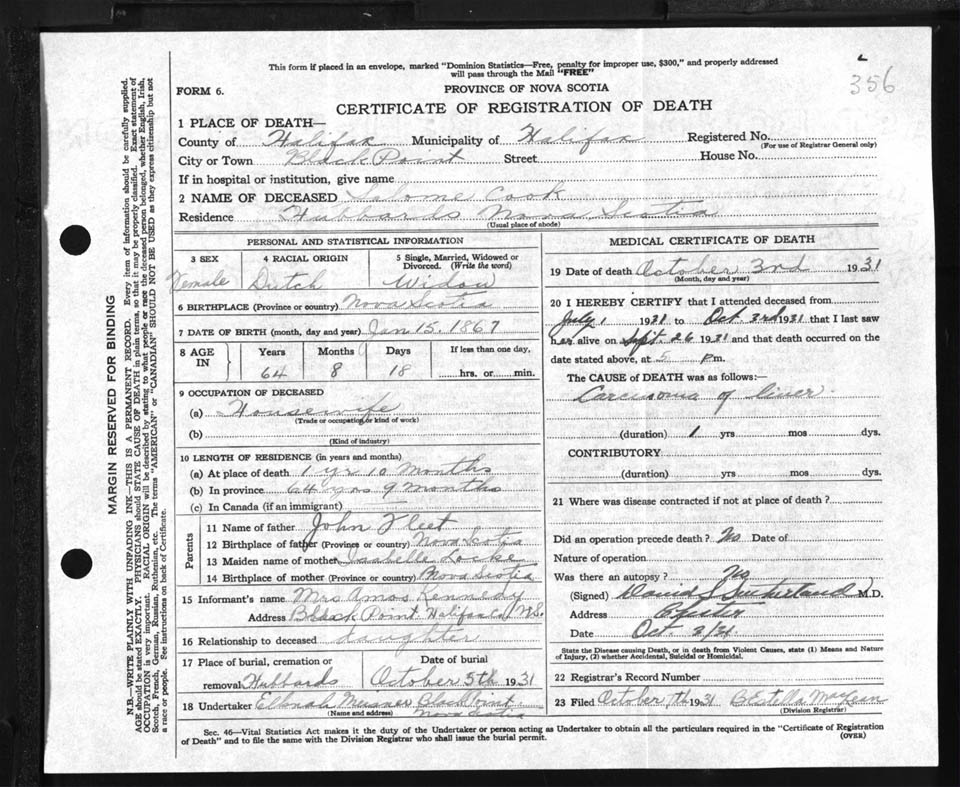 This form if placed in an envelope, marked "Dominion Statistics—Free, penalty for improper use, $300," and properly addressed
will pass through the Mail "FREE"
356
FORM 6.
PROVINCE OF NOVA SCOTIA
CERTIFICATE OF REGISTRATION OF DEATH
1 PLACE OF DEATH—
County of Halifax Municipality of Halifax Registered No.
(For use of Registrar General only)
City or Town Black Point Street House No.
If in hospital or institution, give name
2 NAME OF DECEASED Salome Cook
Residence Hubbards Nova Scotia
(Usual place of abode)
PERSONAL AND STATISTICAL INFORMATION
3 SEX 4 RACIAL ORIGIN 5 Single, Married, Widowed or Divorced. (Write the word)
Female Dutch Widow
6 BIRTHPLACE (Province or country) Nova Scotia
7 DATE OF BIRTH (month, day and year) Jan 15, 1867
8 AGE IN Years Months Days If less than one day,
64 8 18 hrs. or min.
9 OCCUPATION OF DECEASED
(a) Housewife
(Trade or occupation or kind of work)
(b)
(Kind of industry)
10 LENGTH OF RESIDENCE (in years and months)
(a) At place of death 1 yr 10 months
(b) In province 64 yrs 9 months
(c) In Canada (if an immigrant)
Parents
11 Name of father John Fleet
12 Birthplace of father (Province or country) Nova Scotia
13 Maiden name of mother Isabelle Locke
14 Birthplace of mother (Province or country) Nova Scotia
15 Informant's name Mrs Amos Kennedy
Address Black Point Halifax Co. N.S.
16 Relationship to deceased daughter
17 Place of burial, cremation or removal Hubbards Date of burial October 5th 1931
18 Undertaker Black Point
(Name and address) Nova Scotia
MEDICAL CERTIFICATE OF DEATH
19 Date of death October 3rd 1931
(Month, day and year)
20 I HEREBY CERTIFY that I attended deceased from
July 1 1931 to Oct. 3rd 1931 that I last saw
her alive on Sept. 26 1931 and that death occurred on the
date stated above, at 5 pm.
The CAUSE of DEATH was as follows:—
Carcinoma of liver
(duration) 1 yrs mos dys.
CONTRIBUTORY
(duration) yrs mos dys.
21 Where was disease contracted if not at place of death?
Did an operation precede death? No Date of
Nature of operation
Was there an autopsy? No
(Signed) David S Sutherland M.D.
Address Chester
Date Oct
State the Disease causing Death, or in death from Violent Causes, state (1) Means and Nature
of Injury, (2) whether Accidental, Suicidal or Homicidal.
22 Registrar's Record Number
23 Filed October 7th 1931 B Estella MacLean
(Division Registrar)
Sec. 46—Vital Statistics Act makes it the duty of the Undertaker or person acting as Undertaker to obtain all the particulars required in the "Certificate of Registration
of Death" and to file the same with the Division Registrar who shall issue the burial permit.
(OVER)
MARGIN RESERVED FOR BINDING
N.B.—WRITE PLAINLY WITH UNFADING INK—THIS IS A PERMANENT RECORD. Every item of information should be carefully supplied.
AGE should be stated EXACTLY. PHYSICIANS should STATE CAUSE OF DEATH in plain terms, so that it may be properly classified. Exact statement of
OCCUPATION is very important. RACIAL ORIGIN will be described by stating to what people or race the deceased person belonged, whether English, Irish,
Scotch, French, German, Russian, Ruthenian, etc. The terms "AMERICAN" or "CANADIAN" SHOULD NOT BE USED as they express citizenship but not
a race or people. See instructions on back of Certificate.